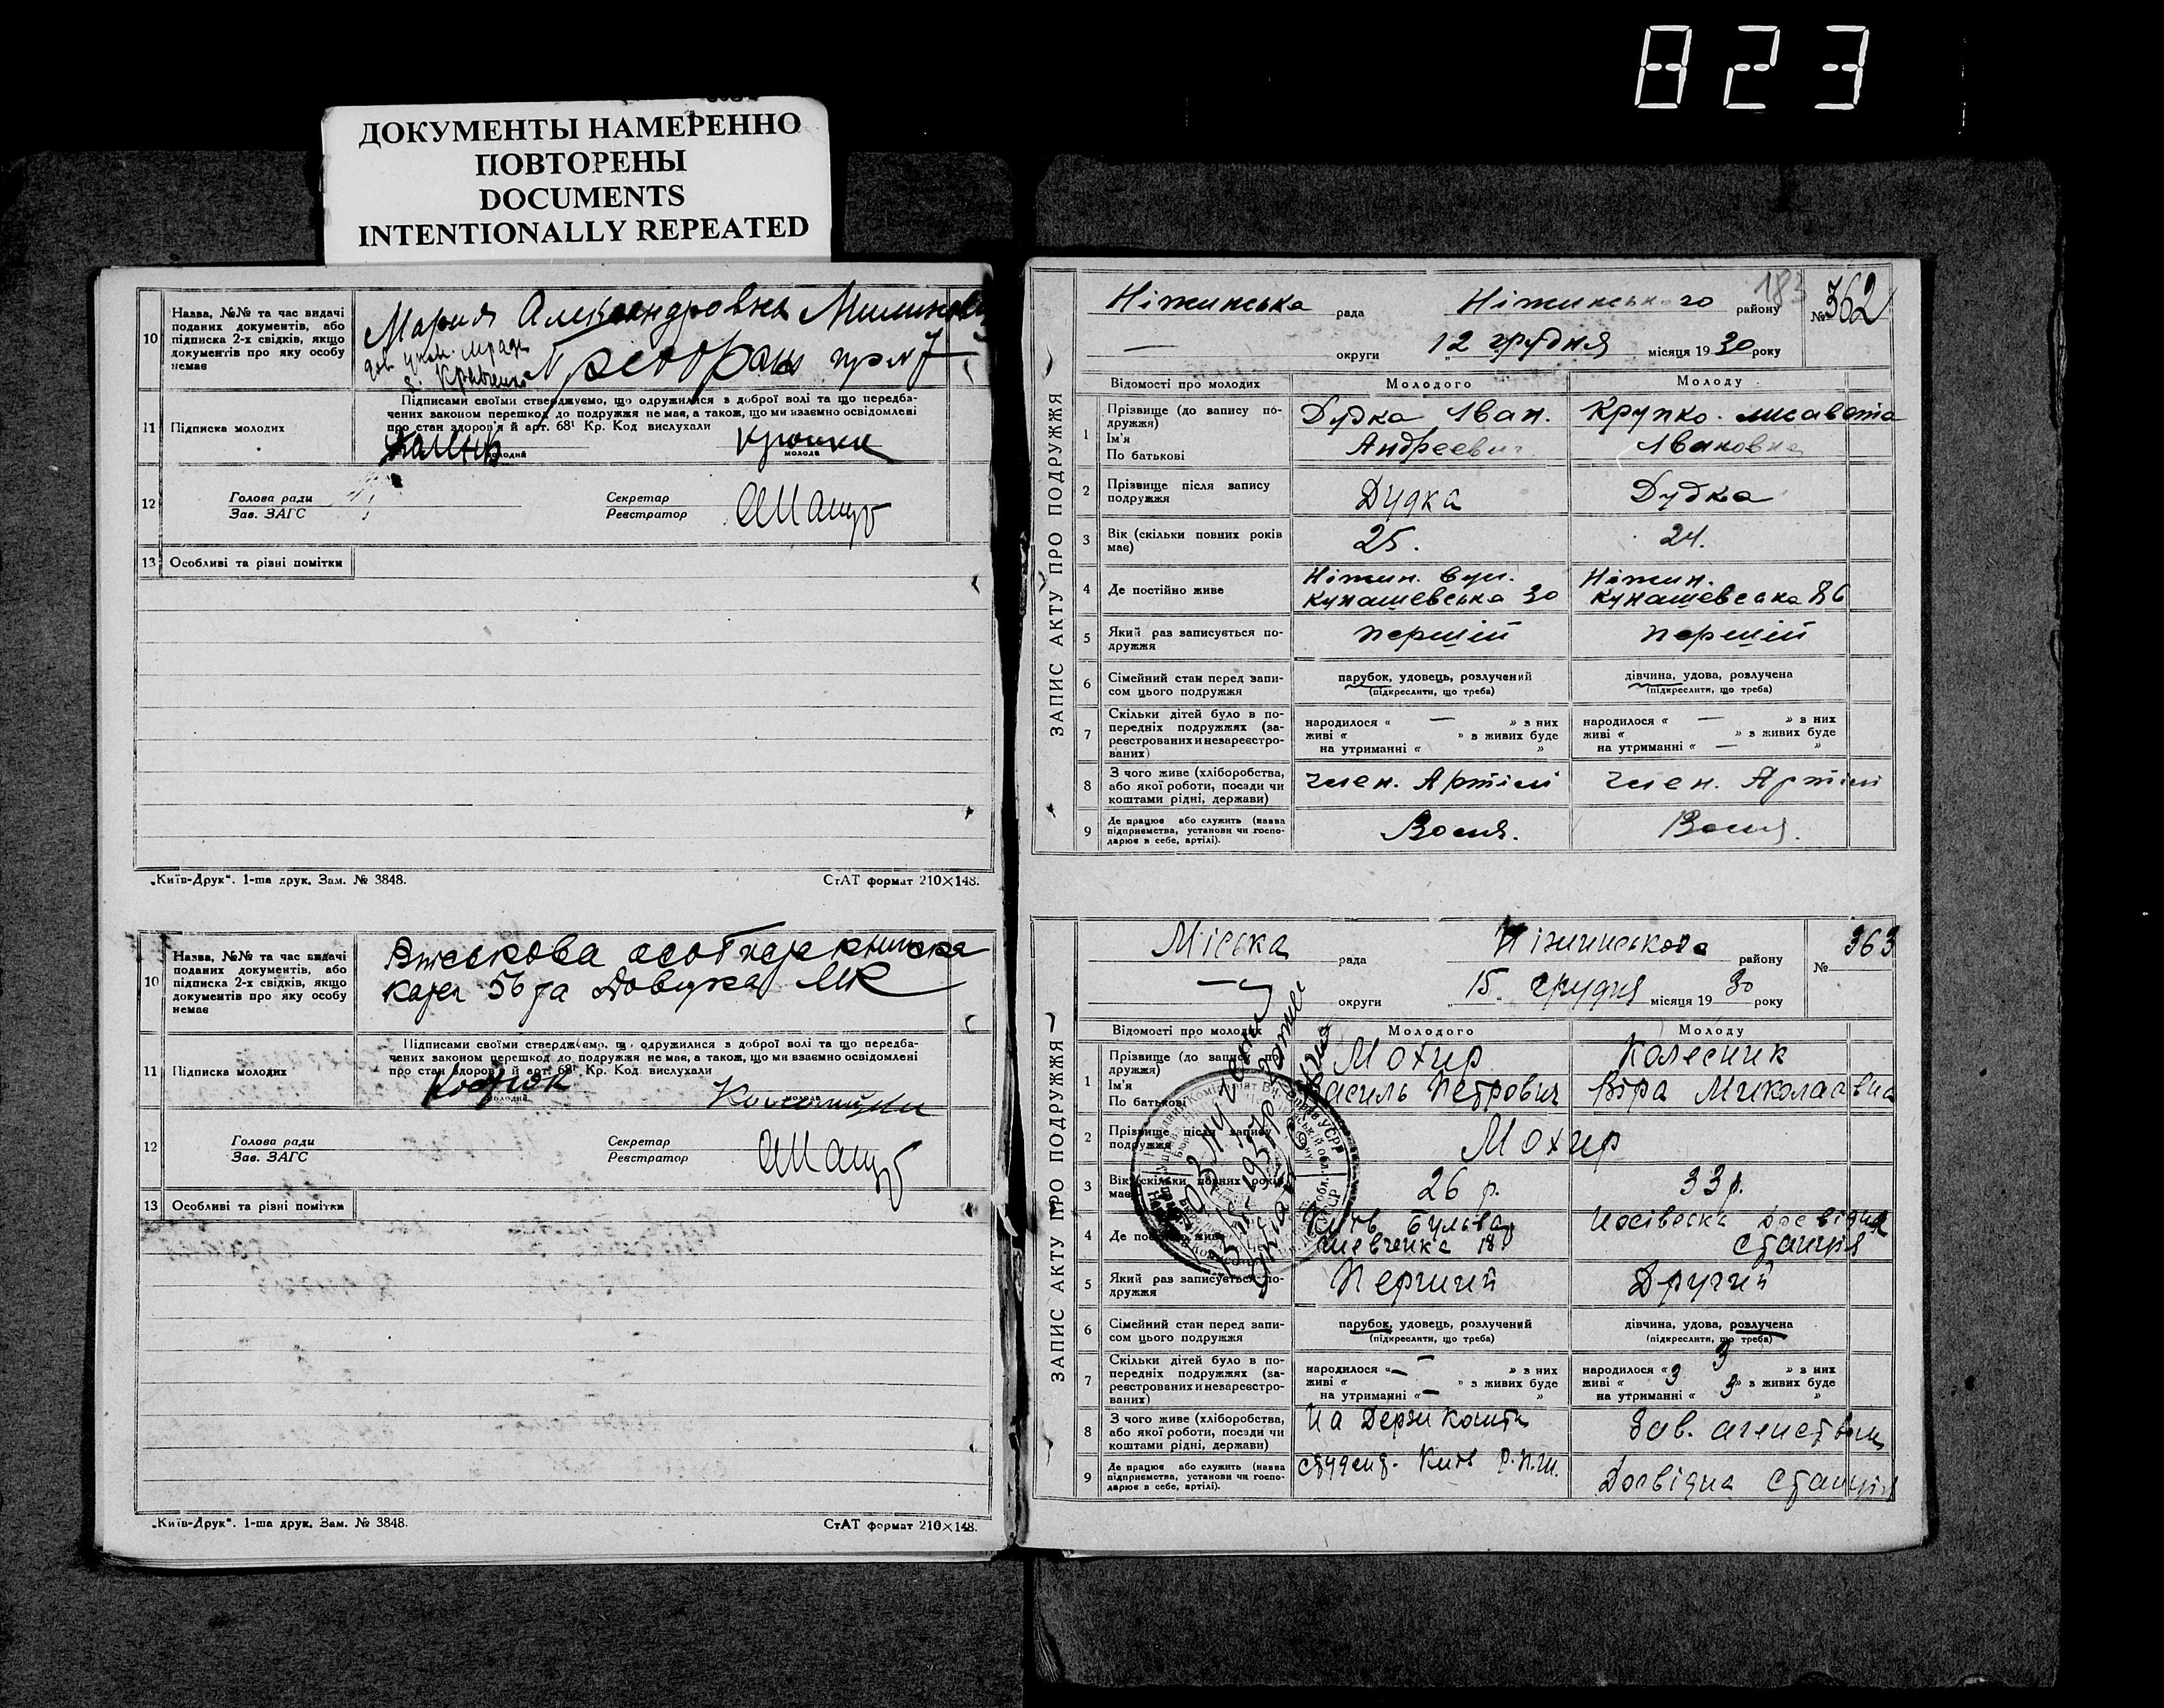 823
ДОКУМЕНТЫ НАМЕРЕННО
ПОВТОРЕНЫ
DOCUMENTS
INTENTIONALLY REPEATED
10
Назва, №№ та час видачі
поданих документів, або
підписка 2-х свідків, якщо
документів про яку особу
немає
Мария Александровна
11
Підписка молодих
Підписами своїми стверджуємо, що одружилися з доброї волі та що передба-
чених законом перешкод до подружжя не має, а також, що ми взаємно освідомлені
про стан здоров'я й арт. 68¹ Кр. Код вислухали
молодий
молода
12
Голова ради
Зав. ЗАГС
Секретар
Реєстратор
13
Особливі та різні помітки
„Київ-Друк“. 1-ша друк. Зам. № 3848.
СтАТ формат 210×148.
10
Назва, №№ та час видачі
поданих документів, або
підписка 2-х свідків, якщо
документів про яку особу
немає
11
Підписка молодих
Підписами своїми стверджуємо, що одружилися з доброї волі та що передба-
чених законом перешкод до подружжя не має, а також, що ми взаємно освідомлені
про стан здоров'я й арт. 68¹ Кр. Код вислухали
молодий
молода
12
Голова ради
Зав. ЗАГС
Секретар
Реєстратор
13
Особливі та різні помітки
„Київ-Друк“. 1-ша друк. Зам. № 3848.
СтАТ формат 210×148.
ЗАПИС АКТУ ПРО ПОДРУЖЖЯ
183
Ніжинська рада Ніжинського району № 362
— округи „12 грудня місяця 1930 року
Відомості про молодих
Молодого
Молоду
1
Прізвище (до запису по-
дружжя)
Ім'я
По батькові
Дудка Іван.
Андреевич
Крупко. лисавета
Івановна
2
Прізвище після запису
подружжя
Дудка
Дудка
3
Вік (скільки повних років
має)
25.
24.
4
Де постійно живе
Ніжин. вул.
Кунашевська 30
Ніжин.
Кунашевська 86
5
Який раз записується по-
дружжя
перший
перший
6
Сімейний стан перед запи-
сом цього подружжя
парубок, удовець, розлучений
(підкреслити, що треба)
дівчина, удова, розлучена
(підкреслити, що треба)
7
Скільки дітей було в по-
передніх подружжях (за-
реєстрованих и незареєстро-
ваних)
народилося « — » з них
живі « » в живих буде
на утриманні « »
народилося « — » з них
живі « » в живих буде
на утриманні « — »
8
З чого живе (хліборобства,
або якої роботи, посади чи
коштами рідні, держави)
член. Артілі
член. Артілі
9
Де працює або служить (назва
підприємства, установи чи госпо-
дарює в себе, артілі).
ЗАПИС АКТУ ПРО ПОДРУЖЖЯ
Міська рада Ніжинського району № 363
— округи „15 Грудня місяця 1930 року
Відомості про молодих
Молодого
Молоду
1
Прізвище (до запису по-
дружжя)
Ім'я
По батькові
Мохир
Василь Петрович
Колесник
Віра Миколаевна
2
Прізвище після запису
подружжя
Мохир
3
Вік (скільки повних років
має)
26 р.
33 р.
4
Де постійно живе
Київ Бульвар
Шевченка 18
Носівська Досвідна
Станція
5
Який раз записується по-
дружжя
Перший
Другий
6
Сімейний стан перед запи-
сом цього подружжя
парубок, удовець, розлучений
(підкреслити, що треба)
дівчина, удова, розлучена
(підкреслити, що треба)
7
Скільки дітей було в по-
передніх подружжях (за-
реєстрованих и незареєстро-
ваних)
народилося « — » з них
живі « » в живих буде
на утриманні « — »
народилося « 3 3 » з них
живі « 3 » в живих буде
на утриманні « 3 »
8
З чого живе (хліборобства,
або якої роботи, посади чи
коштами рідні, держави)
На Держ Кошти
Зав. агенством
9
Де працює або служить (назва
підприємства, установи чи госпо-
дарює в себе, артілі).
студент. Київ
Досвідна Станція